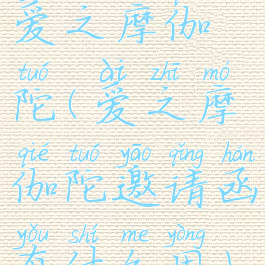 爱之摩伽
tuó ài zhī mó
陀(爱之摩
qié tuó yāo qǐng hán
伽陀邀请函
yǒu shí me yòng
有什么用)